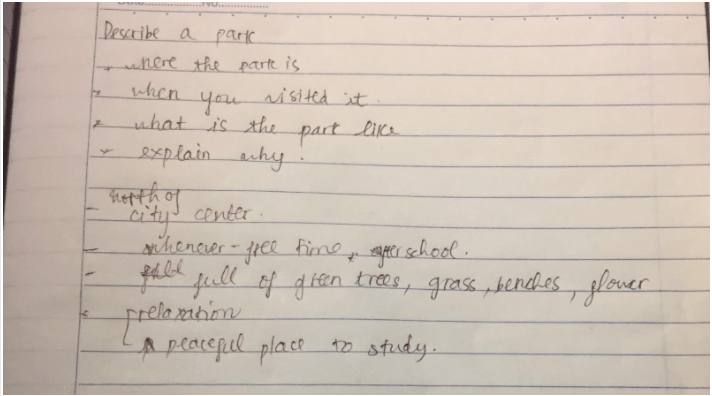 No.
Describe a park
* where the park is
* when you visited it.
* what is the part like
* explain why.
north of
- city center.
- whenever - free time, after school.
- full of green trees, grass, benches, flower
* relaxation
a peaceful place to study.